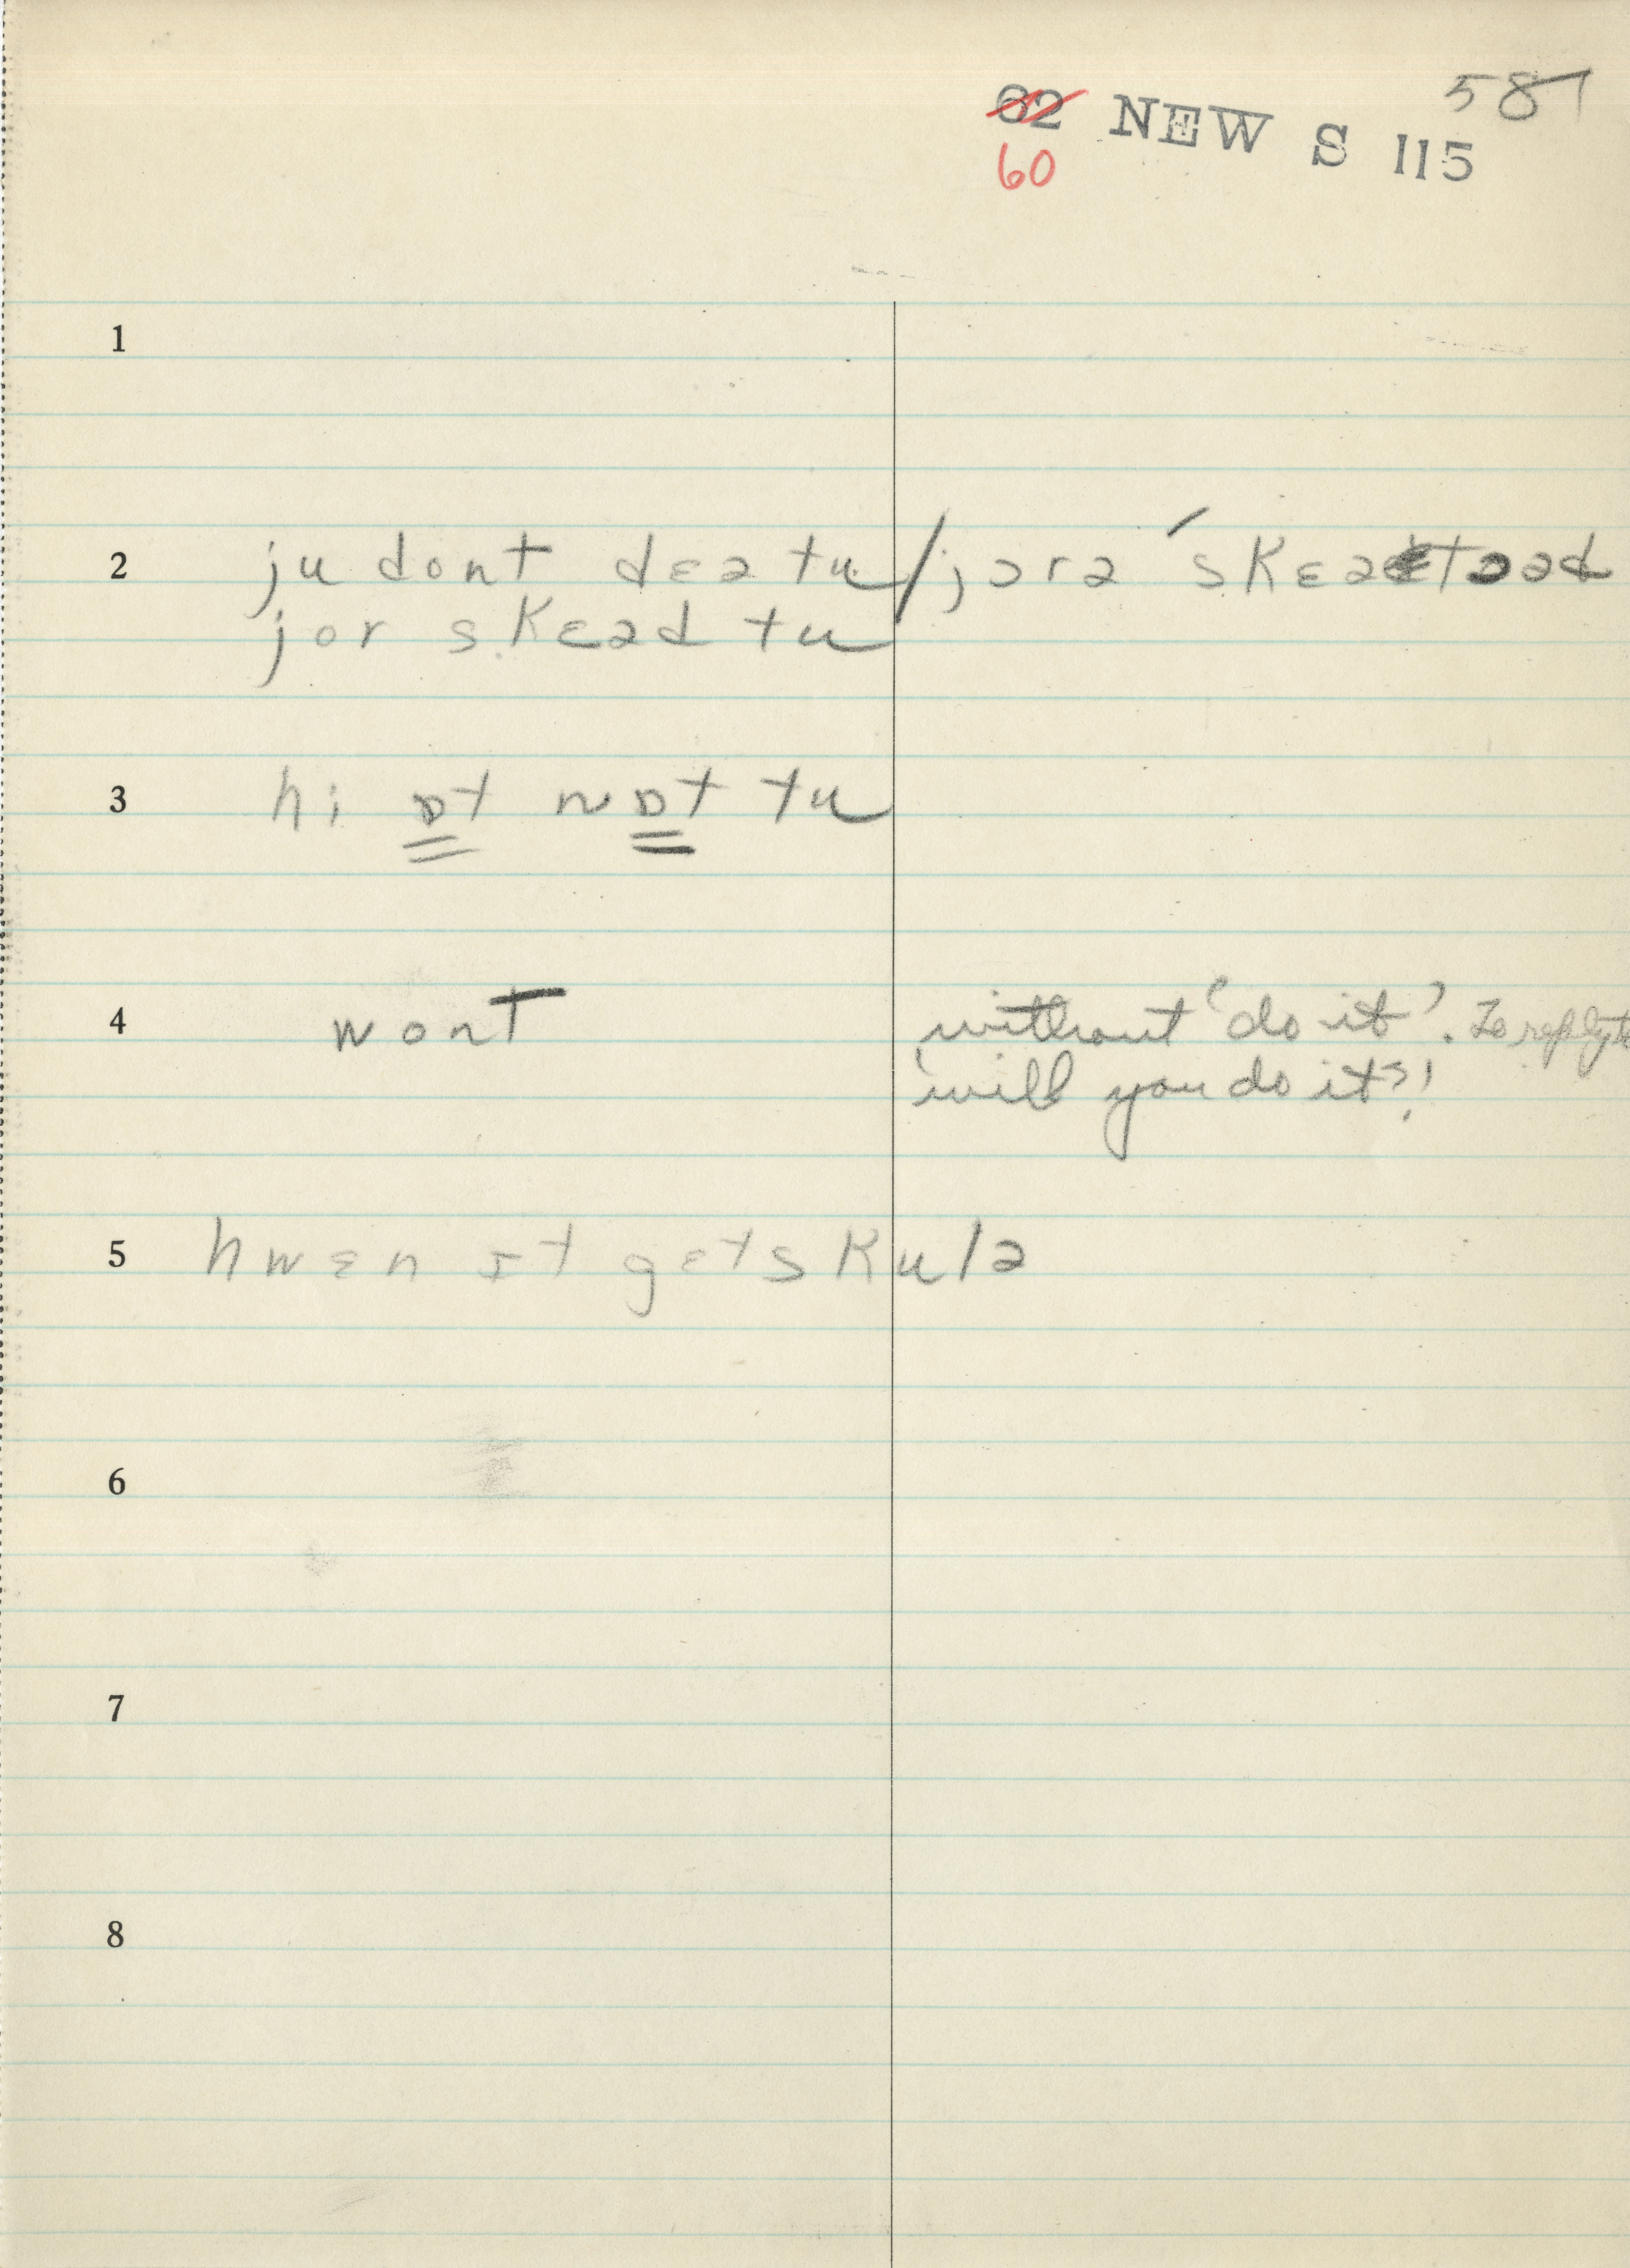 587
62 NEW S 115
60
1
2 ju dont dɛə tu / jɔrə ˈskɛə
jor skɛəd tu
3 hi ɒt nɒt tu
4 wont without 'do it'. To reply to
'will you do it?'
5 hwɛn ɪt gɛts kulə
6
7
8